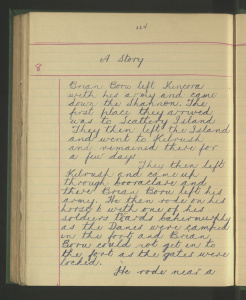 124
A Story
8
Brian Boru left Kincora
with his army and came
down the Shannon. The
first place they arrived
was to Scattery Island.
They then left the Island
and went to Kilrush
and remained there for
a few days.
They then left
Kilrush and came up
through Cooraclare and
there Brian Boru left his
army. He then rode on his
horse & with one of his
soldiers towards Caherinusply
as the Danes were camped
in the fort and Brian
Boru could not get in to
the fort as the gates were
locked.
He rode near a